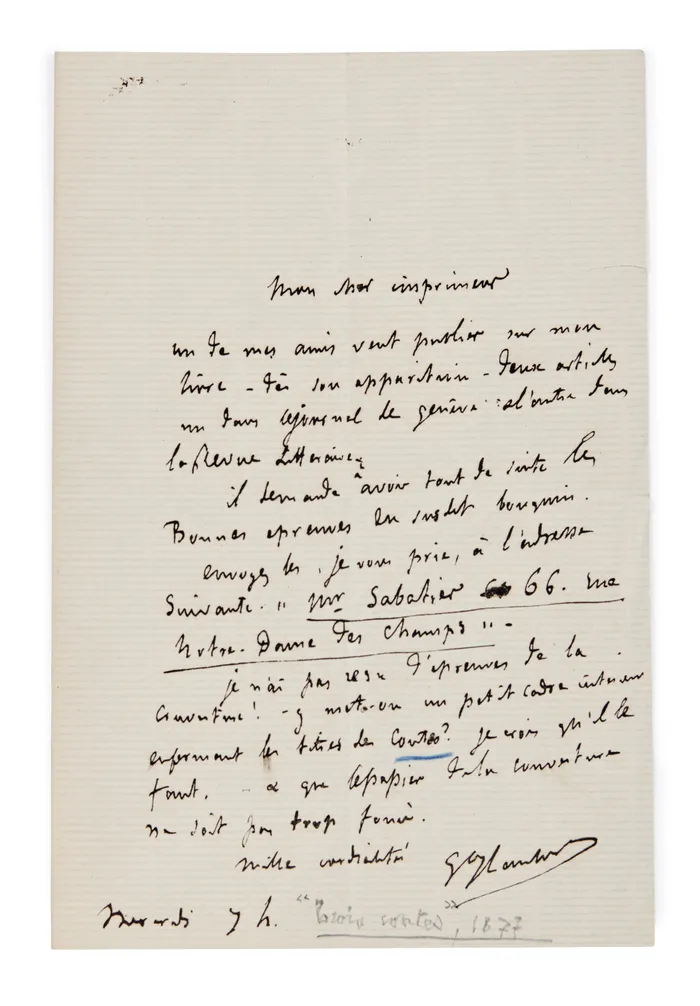 mon cher imprimeur
un de mes amis veut publier sur mon
livre - dès son apparition - deux articles
un dans le journal de genève & l'autre dans
la Revue Littéraire
il demande à avoir tout de suite les
Bonnes epreuves du susdit bouquin.
envoyez les, je vous prie, à l'adresse
Suivante. " Mr Sabatier 66. rue
Notre-Dame des Champs " -
je n'ai pas reçu d'epreuves de la
couverture! - y met-on un petit cadre interieur
enfermant les titres des Contes? je crois qu'il le
faut. - & que le papier de la couverture
ne soit pas trop foncé.
mille cordialités GveFlaubert
Mercredi 7 h. "Trois contes", 1877